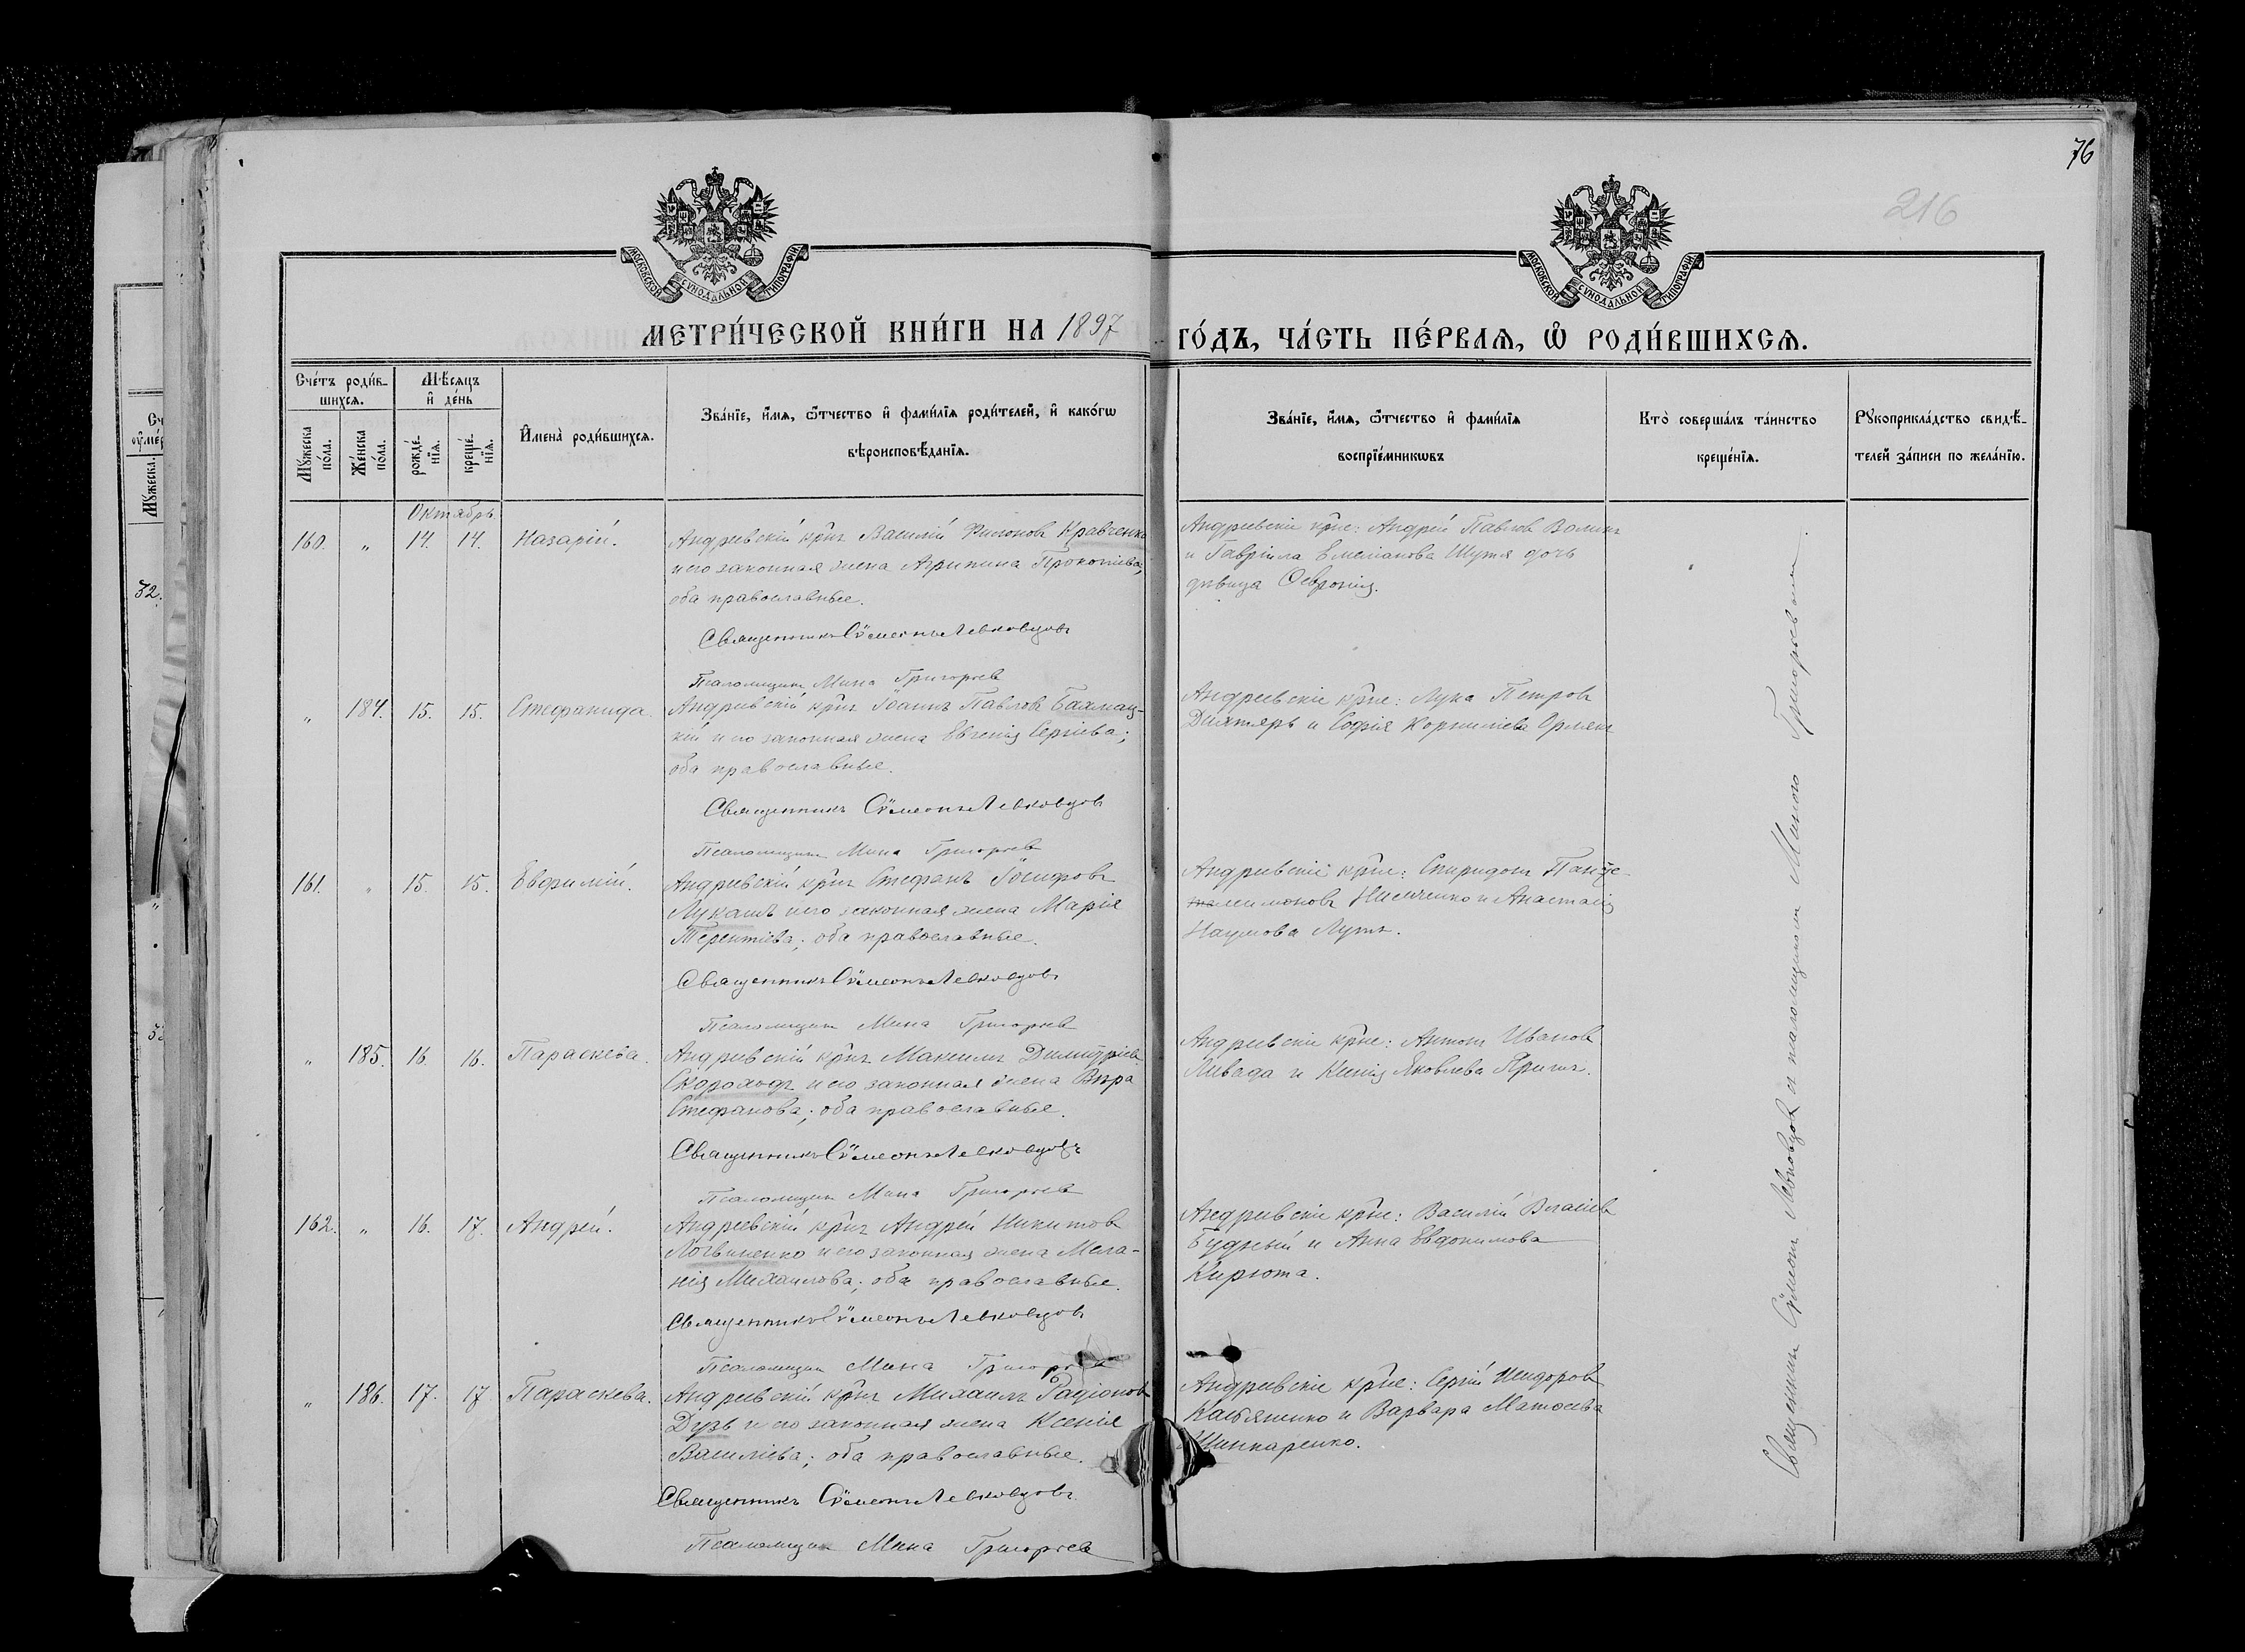 76
216
МОСКОВСКОЙ СУНОДАЛЬНОЙ ТИПОГРАФІИ
МОСКОВСКОЙ СУНОДАЛЬНОЙ ТИПОГРАФІИ
МЕТРИ́ЧЕСКОЙ КНИ́ГИ НА 1897 ГО́ДЪ, ЧА́СТЬ ПЕ́РВАѦ, Ѿ РОДИ́ВШИХСѦ.
Сче́тъ роди́в-
шихсѧ.
Мѣ́сѧцъ
и҆ де́нь
Мꙋ́жеска
по́ла.
Же́нска
по́ла.
рожде́-
нїѧ.
креще́-
нїѧ.
И҆мена̀ роди́вшихсѧ.
Зва́нїе, и҆́мѧ, ѻ҆́тчество и҆ фами́лїѧ роди́телей, и҆ како́гѡ
вѣроисповѣ́данїѧ.
Зва́нїе, и҆́мѧ, ѻ҆́тчество и҆ фами́лїѧ
воспрїе́мникѡвъ
Кто̀ соверша́лъ та́инство
креще́нїѧ.
Рꙋкоприкла́дство свидѣ́-
телей за́писи по жела́нїю.
Октябрь.
160. „ 14. 14. Назарій.
Андреевскій кр̃нъ Василій Филоновъ Кравченко
и его законная жена Агрипина Прокопіева;
оба православные.
Священникъ Сѵмеонъ Левковцовъ
Псаломщикъ Мина Григорьев
Андреевскіе кр̃не: Андрей Павлов
и Гавріила Емеліанова Шутя дочь
дѣвица Февронія.
„ 184. 15. 15. Стефанида.
Андреевскій кр̃нъ Іоаннъ Павлов Бахмац-
кій и его законная жена Евгенія Сергіева;
оба православные.
Священникъ Сѵмеонъ Левковцовъ
Псаломщикъ Мина Григорьев
Андреевскіе кр̃не: Лука Петров
Дихтярь и Софія Корниліева
161. „ 15. 15. Евфимій.
Андреевскій кр̃нъ Стефанъ Іосифовъ
Лукашъ и его законная жена Марія
Терентіева; оба православные.
Священникъ Сѵмеонъ Левковцовъ
Псаломщикъ Мина Григорьев
Андреевскіе кр̃не: Спиридонъ Панте-
леимоновъ и Анастасія
Наумова
„ 185. 16. 16. Параскева.
Андреевскій кр̃нъ Максимъ Димитріев
Скороходъ и его законная жена Вѣра
Стефанова; оба православные.
Священникъ Сѵмеонъ Левковцовъ
Псаломщикъ Мина Григорьев
Андреевскіе кр̃не: Антонъ Иванов
Ливада и Ксенія Яковлева
162. „ 16. 17. Андрей.
Андреевскій кр̃нъ Андрей Никитов
Логвиненко и его законная жена Мела-
нія Михаилова; оба православные.
Священникъ Сѵмеонъ Левковцовъ
Псаломщикъ Мина Григорьев
Андреевскіе кр̃не: Василій Власіев
Будный и Анна Евдокимова
Кирюта.
„ 186. 17. 17. Параскева.
Андреевскій кр̃нъ Михаилъ Радіонов
Дузь и его законная жена Ксенія
Василіева; оба православные.
Священникъ Сѵмеонъ Левковцовъ
Псаломщикъ Мина Григорьев
Андреевскіе кр̃не: Сергій Исидоров
Касьяненко и Варвара Матѳеева
Шинкаренко.
Священникъ Сѵмеонъ Левковцовъ и псаломщикомъ Миною Григорьевымъ.